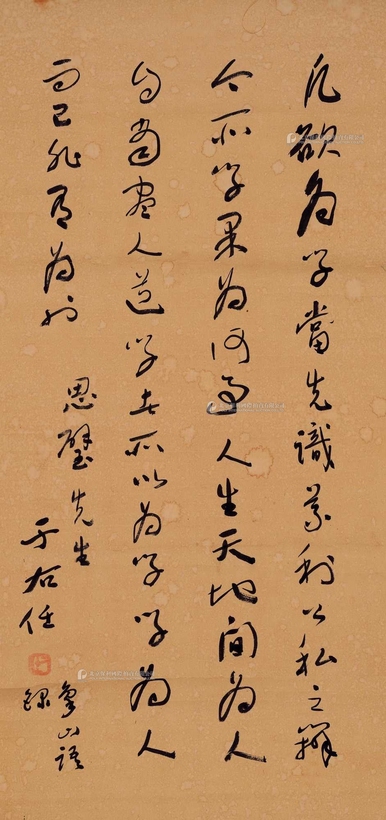 凡欲為學當先識義利公私之辨
今所學果為何事人生天地間為人
自當盡人道學者所以為學學為人
而已非有為也
思璧先生
于右任
象山語
錄